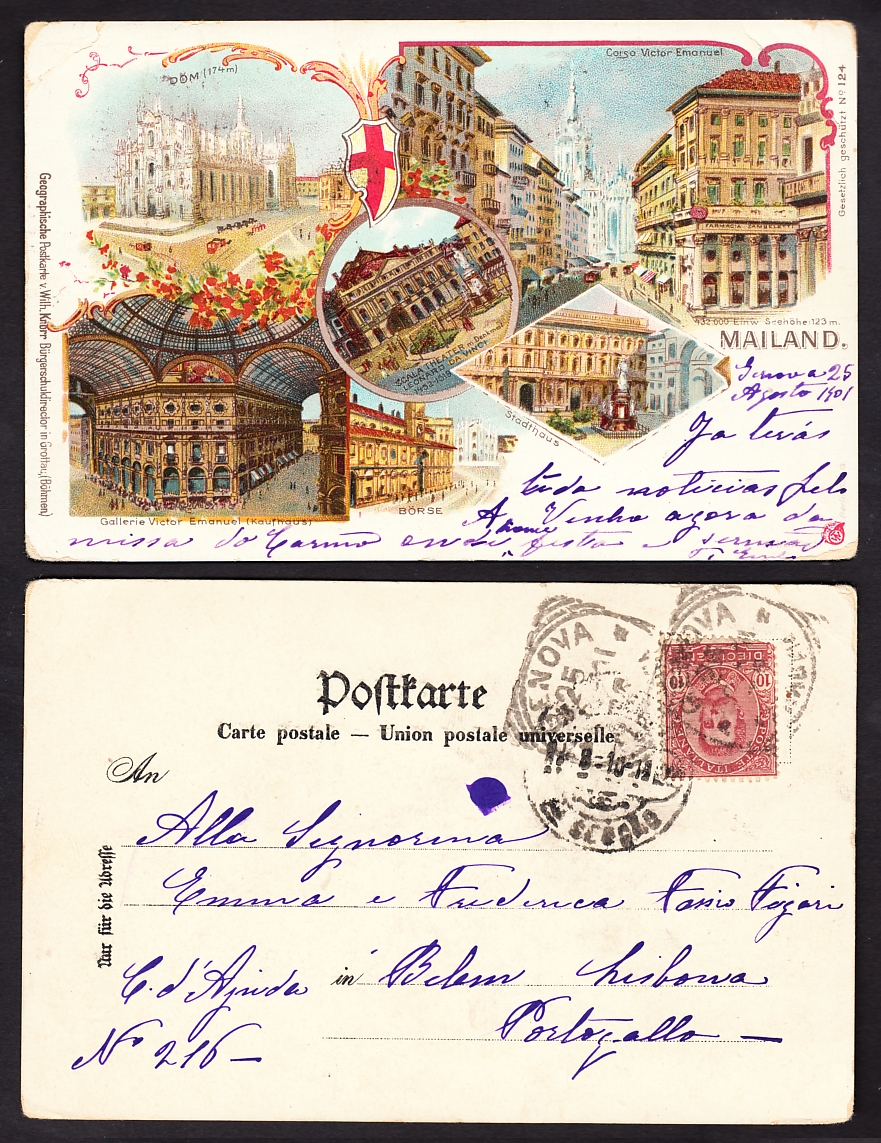 DOM (174m)
Corso Victor Emanuel
Gesetzlich geschützt No 124
Geographische Postkarte v. Wilh. Knorr Bürgerschuldirector in Grottau, (Böhmen)
FARMACIA
SCALA THEATER m. Denkmal
LEONARD DA VINCI
1452-1519
432 000 Einw. Seehöhe: 123 m.
MAILAND.
Stadthaus
BÖRSE
Gallerie Victor Emanuel (Kaufhaus)
Genova 25
Agosto 1901
Ja terás
tido noticias pelo
A Venho agora da
missa do Carmo festa e sermão
Postkarte
Carte postale — Union postale universelle
GENOVA
25
POSTE ITALIANE
DIECI
10
10
An
Nur für die Adresse
Alla Signorina
Emma e Frederica
C. d'Ajuda in Belem Lisbona
Portogallo —
No 216 —